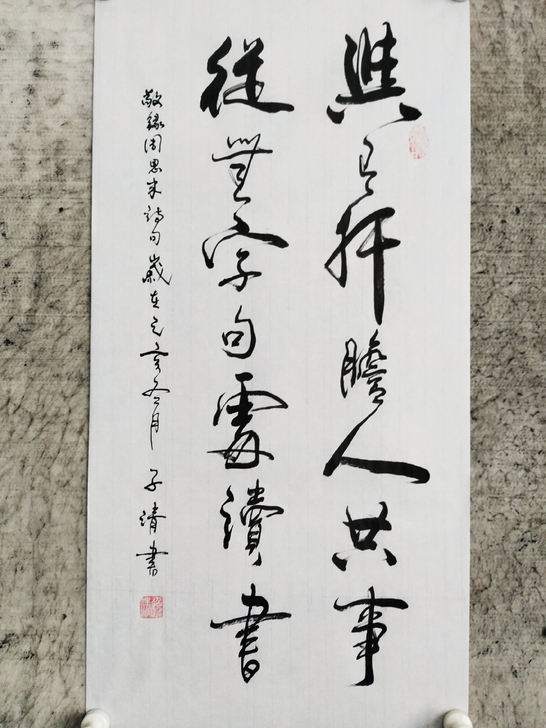 與有肝膽人共事
從無字句處讀書
敬録周恩来詩句歲在己亥冬月 子靖書